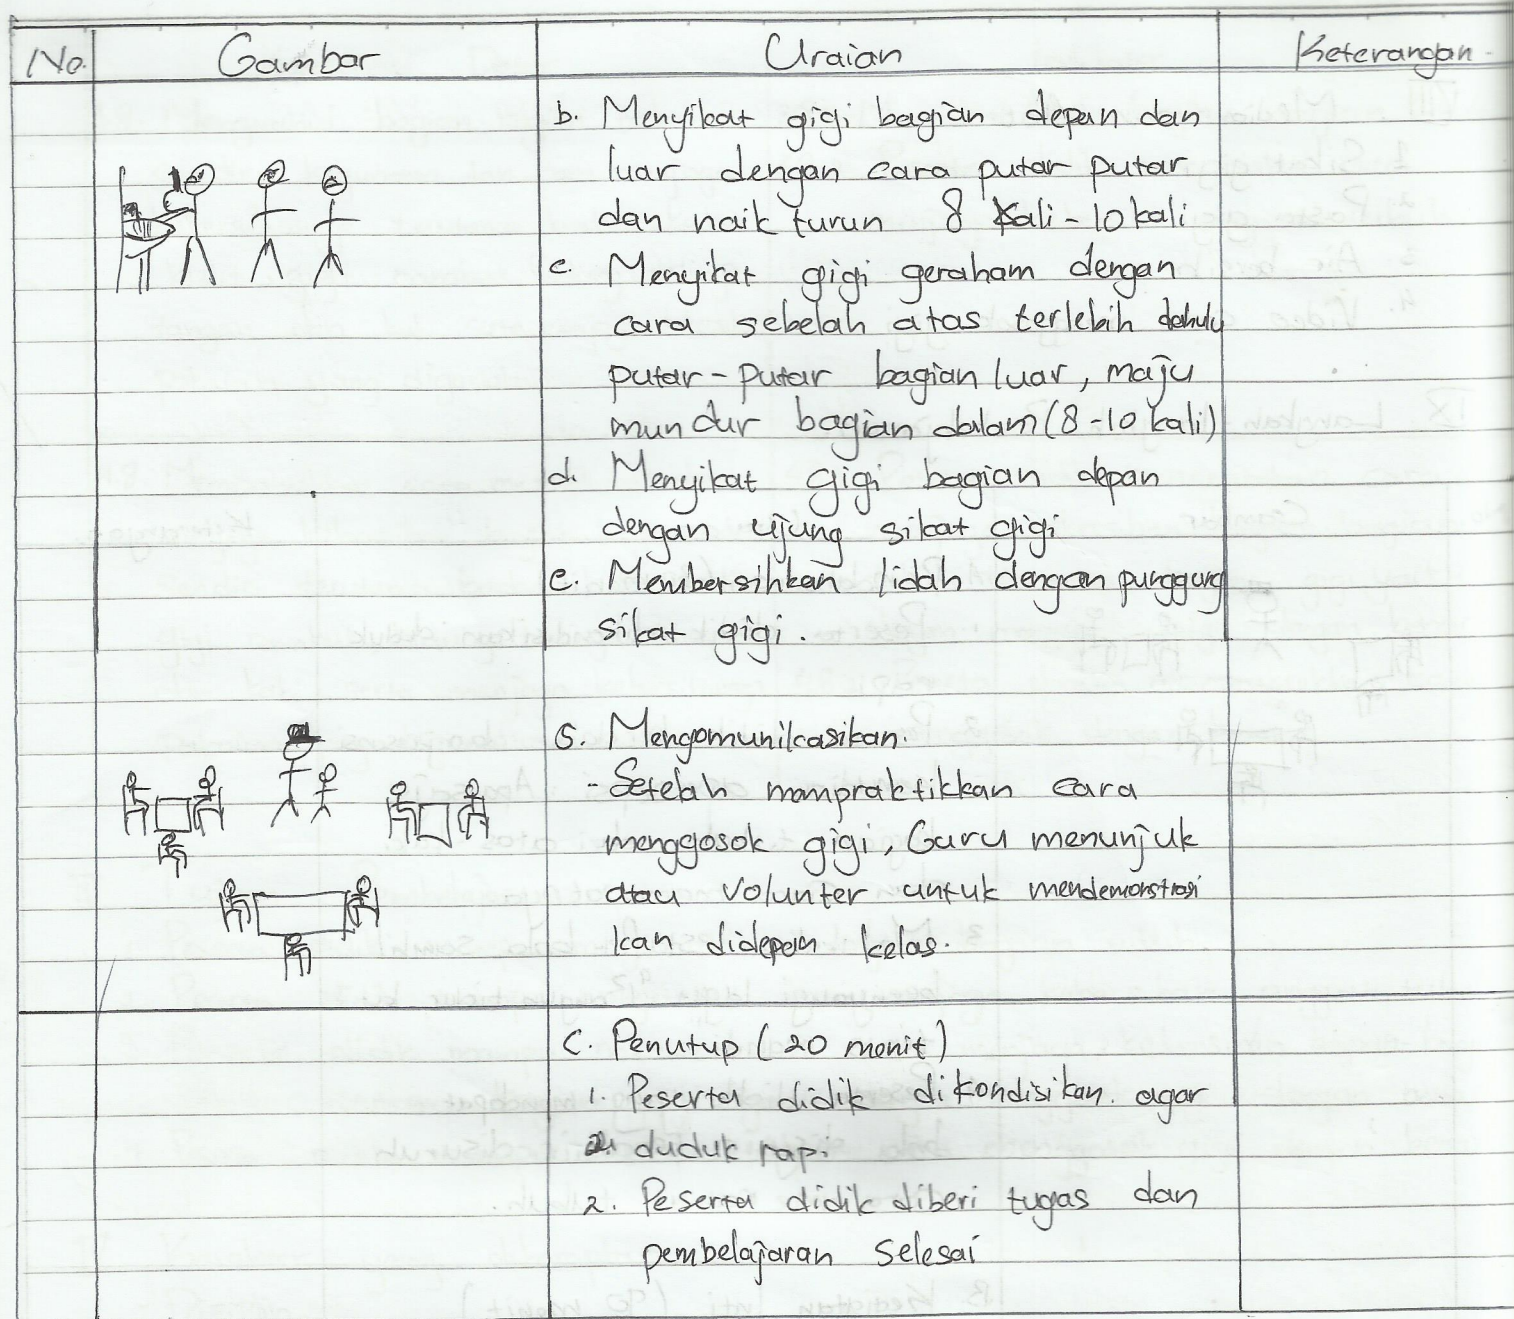 No. Gambar Uraian Keterangan
b. Menyikat gigi bagian depan dan
luar dengan cara putar putar
dan naik turun 8 kali - 10 kali
c. Menyikat gigi geraham dengan
cara sebelah atas terlebih dahulu
putar - putar bagian luar, maju
mundur bagian dalam (8 - 10 kali)
d. Menyikat gigi bagian depan
dengan ujung sikat gigi
e. Membersihkan lidah dengan punggung
sikat gigi.
5. Mengomunikasikan.
- Setelah mempraktikkan cara
menggosok gigi, Guru menunjuk
atau volunter untuk mendemonstrasi
kan didepan kelas.
C. Penutup (20 menit)
1. Peserta didik dikondisikan agar
duduk rapi
2. Peserta didik diberi tugas dan
pembelajaran selesai